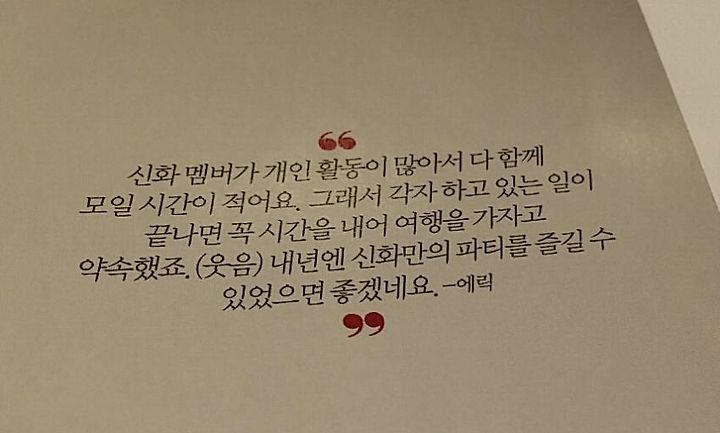 “
신화 멤버가 개인 활동이 많아서 다 함께
모일 시간이 적어요. 그래서 각자 하고 있는 일이
끝나면 꼭 시간을 내어 여행을 가자고
약속했죠. (웃음) 내년엔 신화만의 파티를 즐길 수
있었으면 좋겠네요. –에릭
”